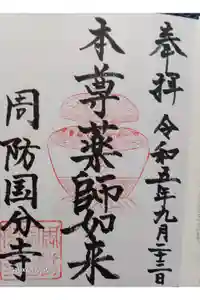 奉拝 令和五年九月二十二日
本尊薬師如来
周防国分寺